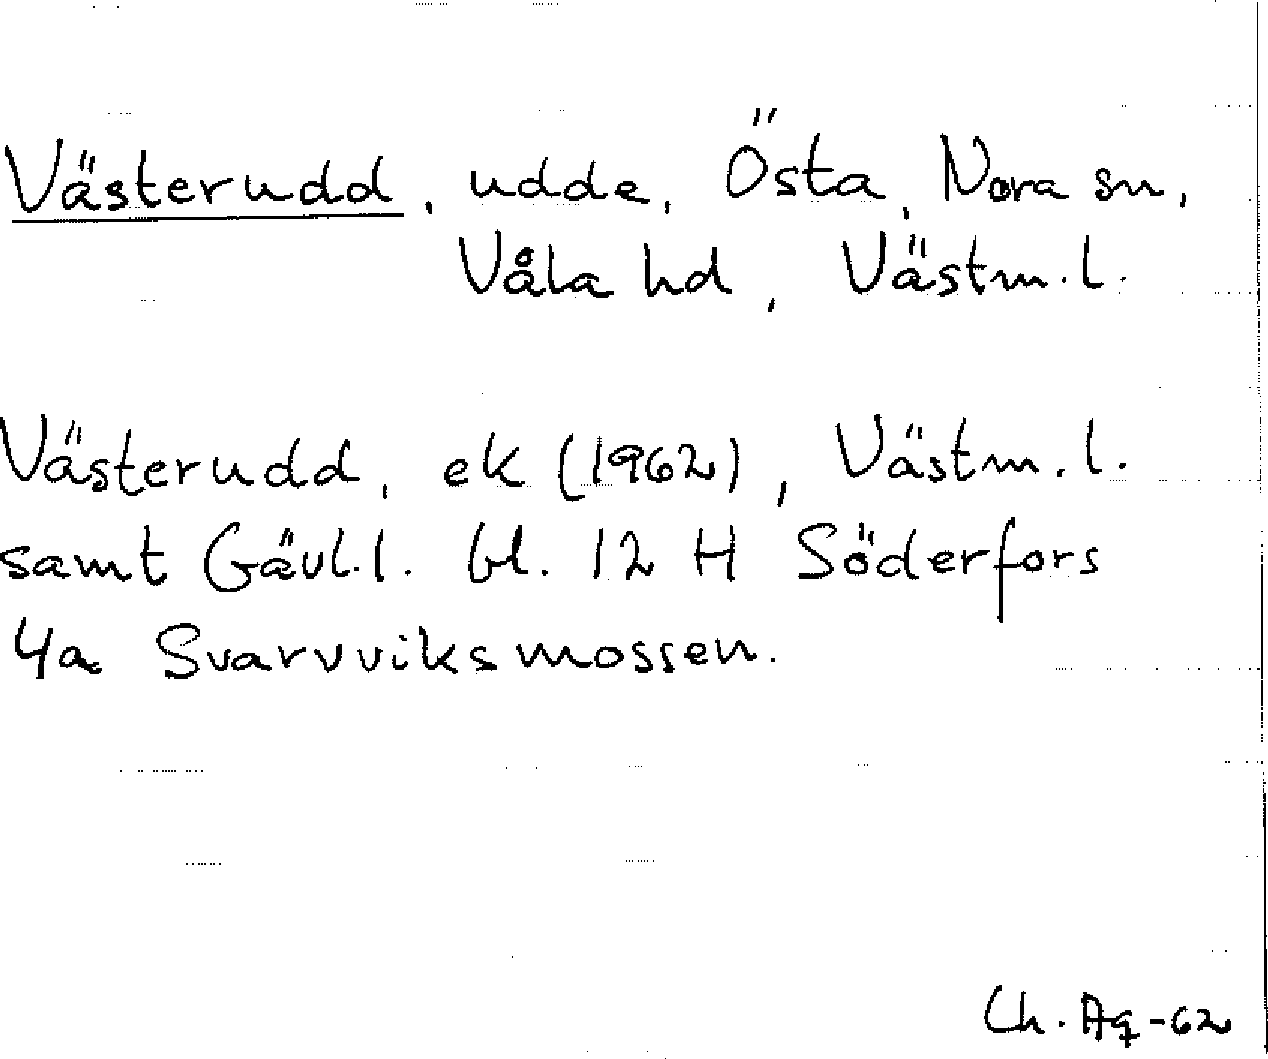 Västerudd, udde, Östa, Nora sn,
Våla hd, Västm.l.
Västerudd, ek (1962), Västm.l.
samt Gävl.l. bl. 12 H Söderfors
4a Svarvviksmossen.
Ch. Ag -62